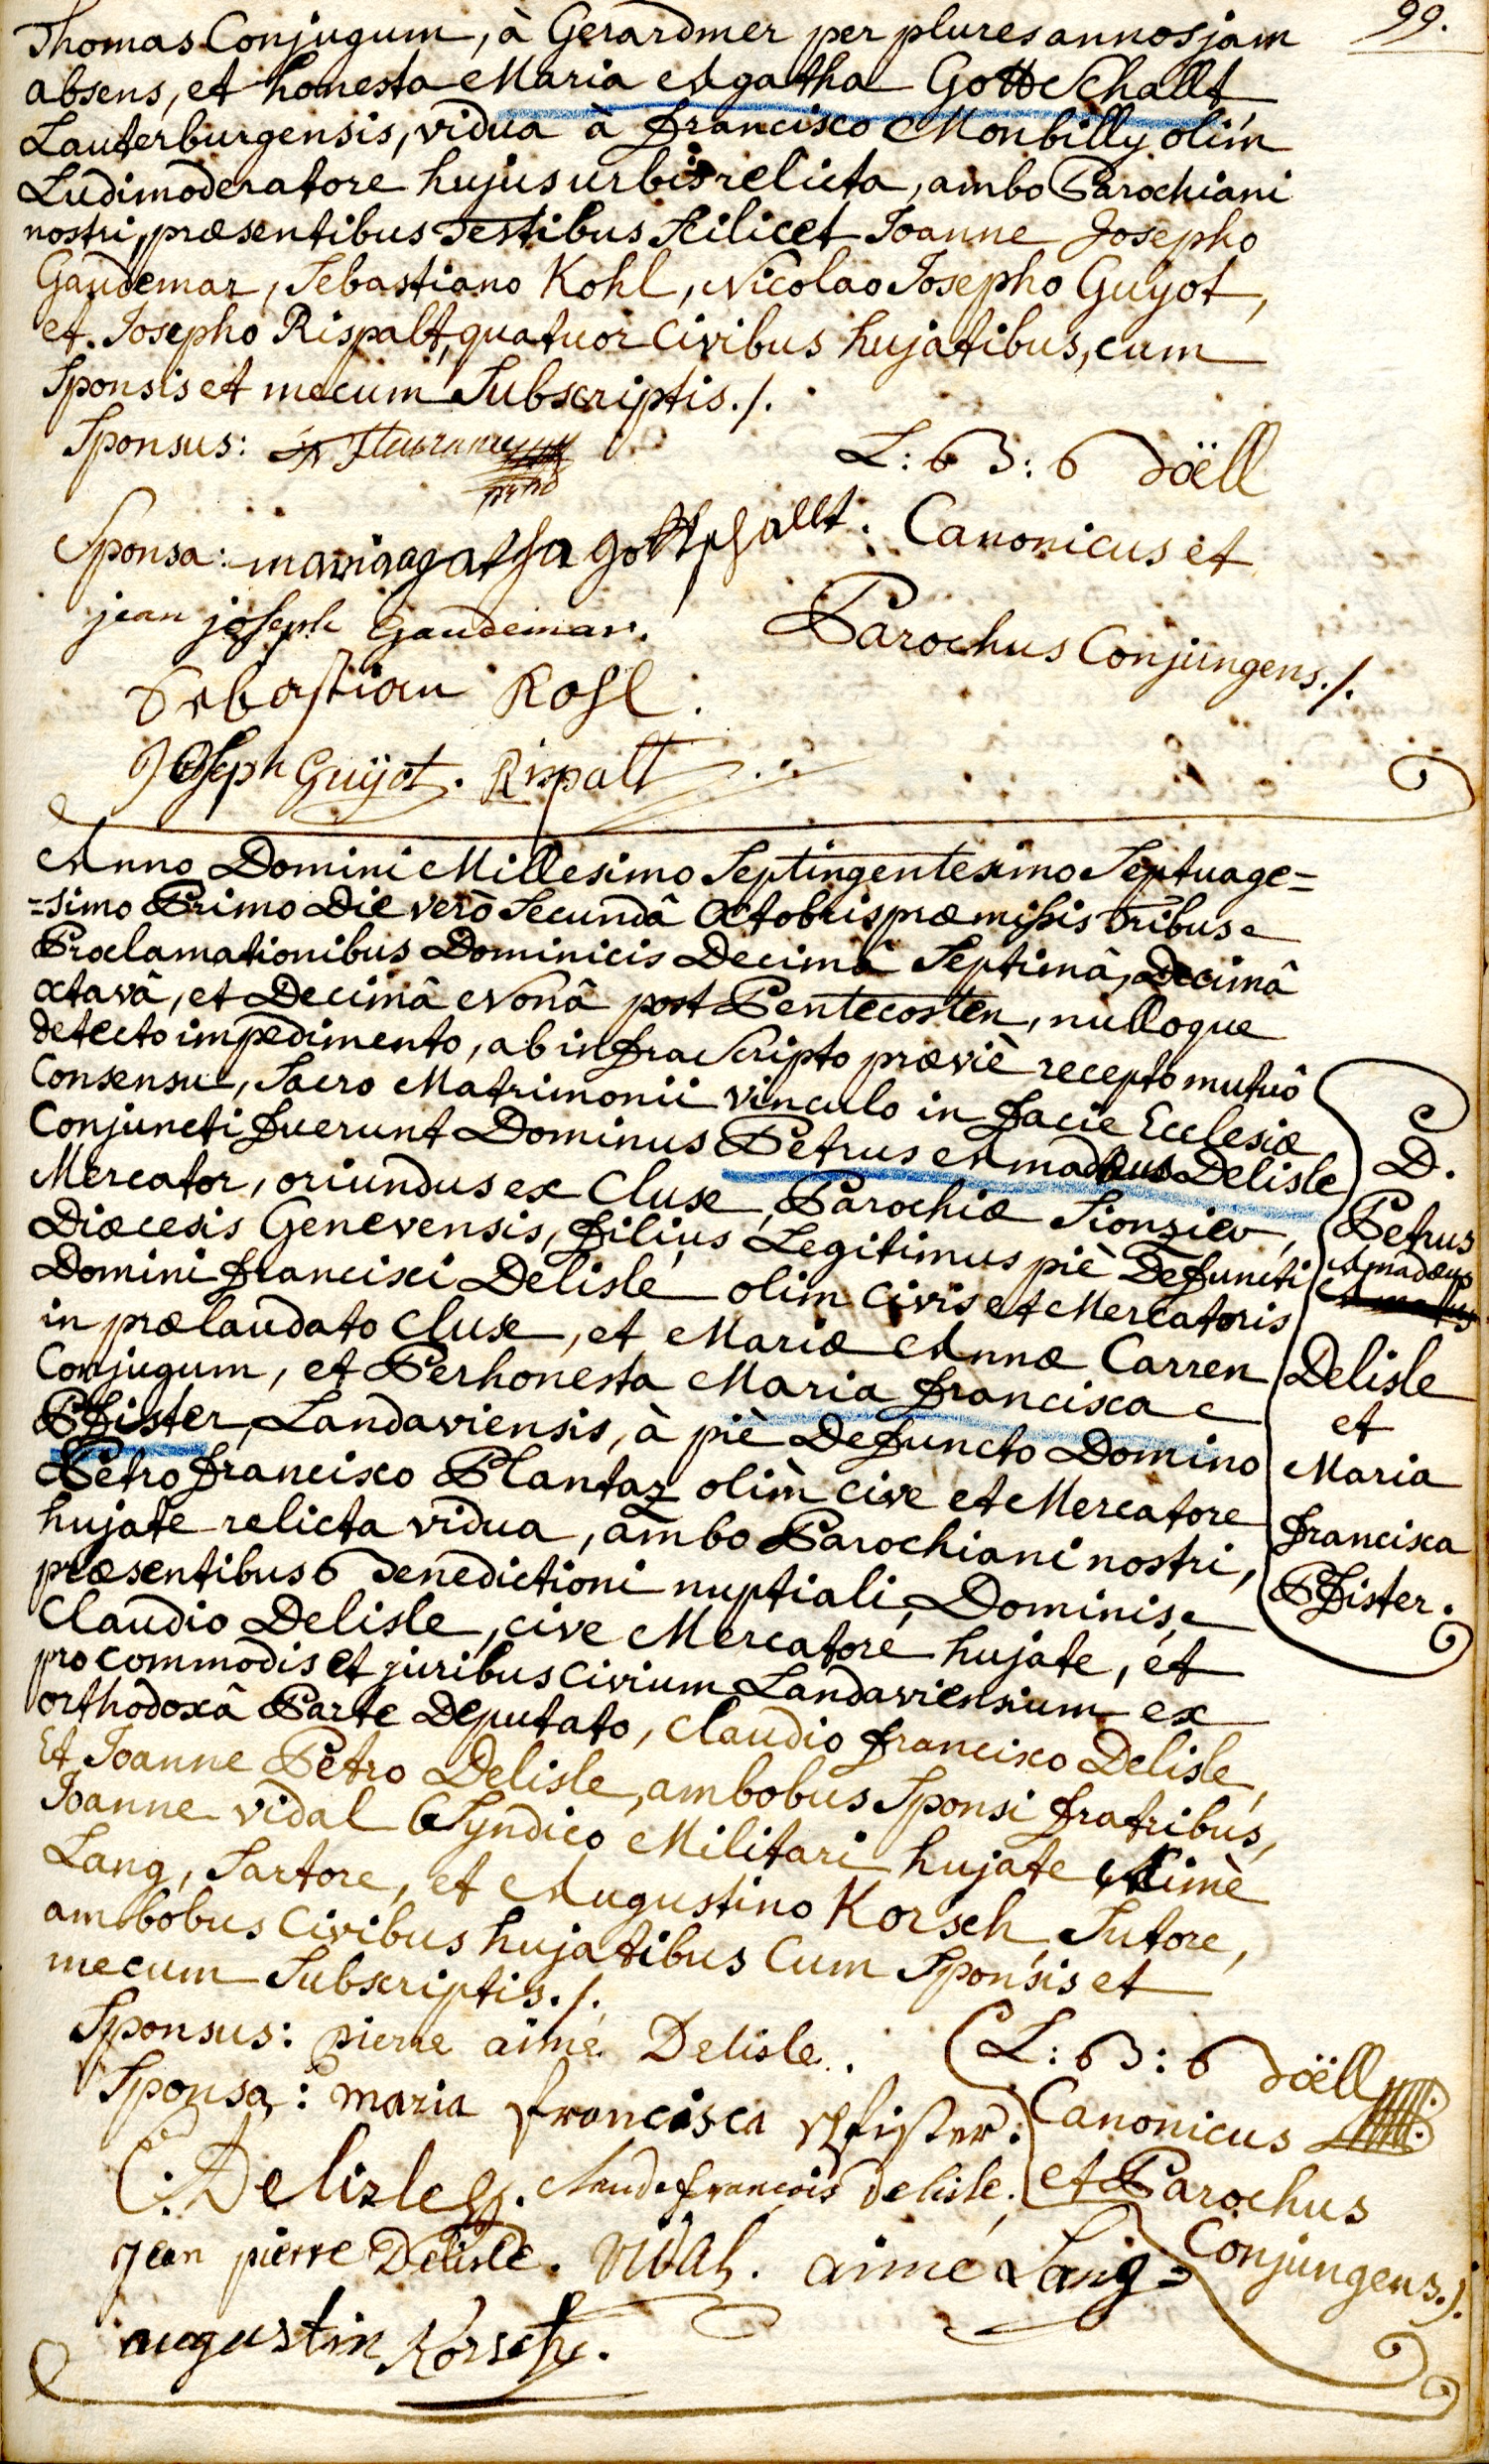 99.
Thomas Conjugum, à Gerardmer per plures annos jam
absens, et honesta Maria Agatha Gottschallt
Lauterburgensis, vidua à Francisco Monbilly olim
Ludimoderatore hujus urbis relicta, ambo Parochiani
nostri, præsentibus Testibus Scilicet Joanne Josepho
Gaudemar, Sebastiano Kohl, Nicolao Josepho Guyot,
et Josepho Rispalt, quatuor Civibus hujatibus, cum
Sponsis et mecum Subscriptis./.
Sponsus:
L: B: Doëll
Sponsa: maria agatha gottschallt.
Canonicus et
jean joseph Gaudemar.
Parochus Conjungens./.
Sebastian Kohl.
Joseph Guÿot. Rispalt
Anno Domini Millesimo Septingentesimo Septuage=
=simo Primo Die verò Secundâ Octobris præmissis Tribus
Proclamationibus Dominicis Decimâ Septimâ, Decimâ
octavâ, et Decimâ Nonâ post Pentecosten, nulloque
detecto impedimento, ab infra Scripto præviè recepto mutuô
Consensu, Sacro Matrimonii vinculo in facie Ecclesiæ
Conjuncti fuerunt Dominus Petrus Amadæus Delisle
Mercator, oriundus ex Cluse, Parochiæ Sionzier,
Diœcesis Genevensis, filius Legitimus piè Defuncti
Domini Francisci Delisle olim Civis et Mercatoris
in prælaudato Cluse, et Mariæ Annæ Carren
Conjugum, et Perhonesta Maria Francisca
Pfister, Landaviensis, à piè Defuncto Domino
Petro Francisco Plantaz olim cive et Mercatore
hujate relicta vidua, ambo Parochiani nostri,
præsentibus Benedictioni nuptiali, Dominis
Claudio Delisle, cive Mercatore hujate, et
pro commodis et juribus Civium Landaviensium ex
orthodoxâ Parte Deputato, Claudio Francisco Delisle,
Et Joanne Petro Delisle, ambobus Sponsi fratribus,
Joanne vidal Syndico Militari hujate Aimè
Lang, Sartore, et Augustino Korsch, Sutore,
ambobus Civibus hujatibus Cum Sponsis et
mecum Subscriptis./.
D.
Petrus
Amadæus
Delisle
et
Maria
Francisca
Pfister.
Sponsus: pierre aimé Delisle.
L: B: Doëll
Sponsa: maria francisca Pfister.
Canonicus
C: Delisle. Claude françois delisle.
et Parochus
jean pierre Delisle. vidal. aime Lang
Conjungens./.
augustin Korsch.